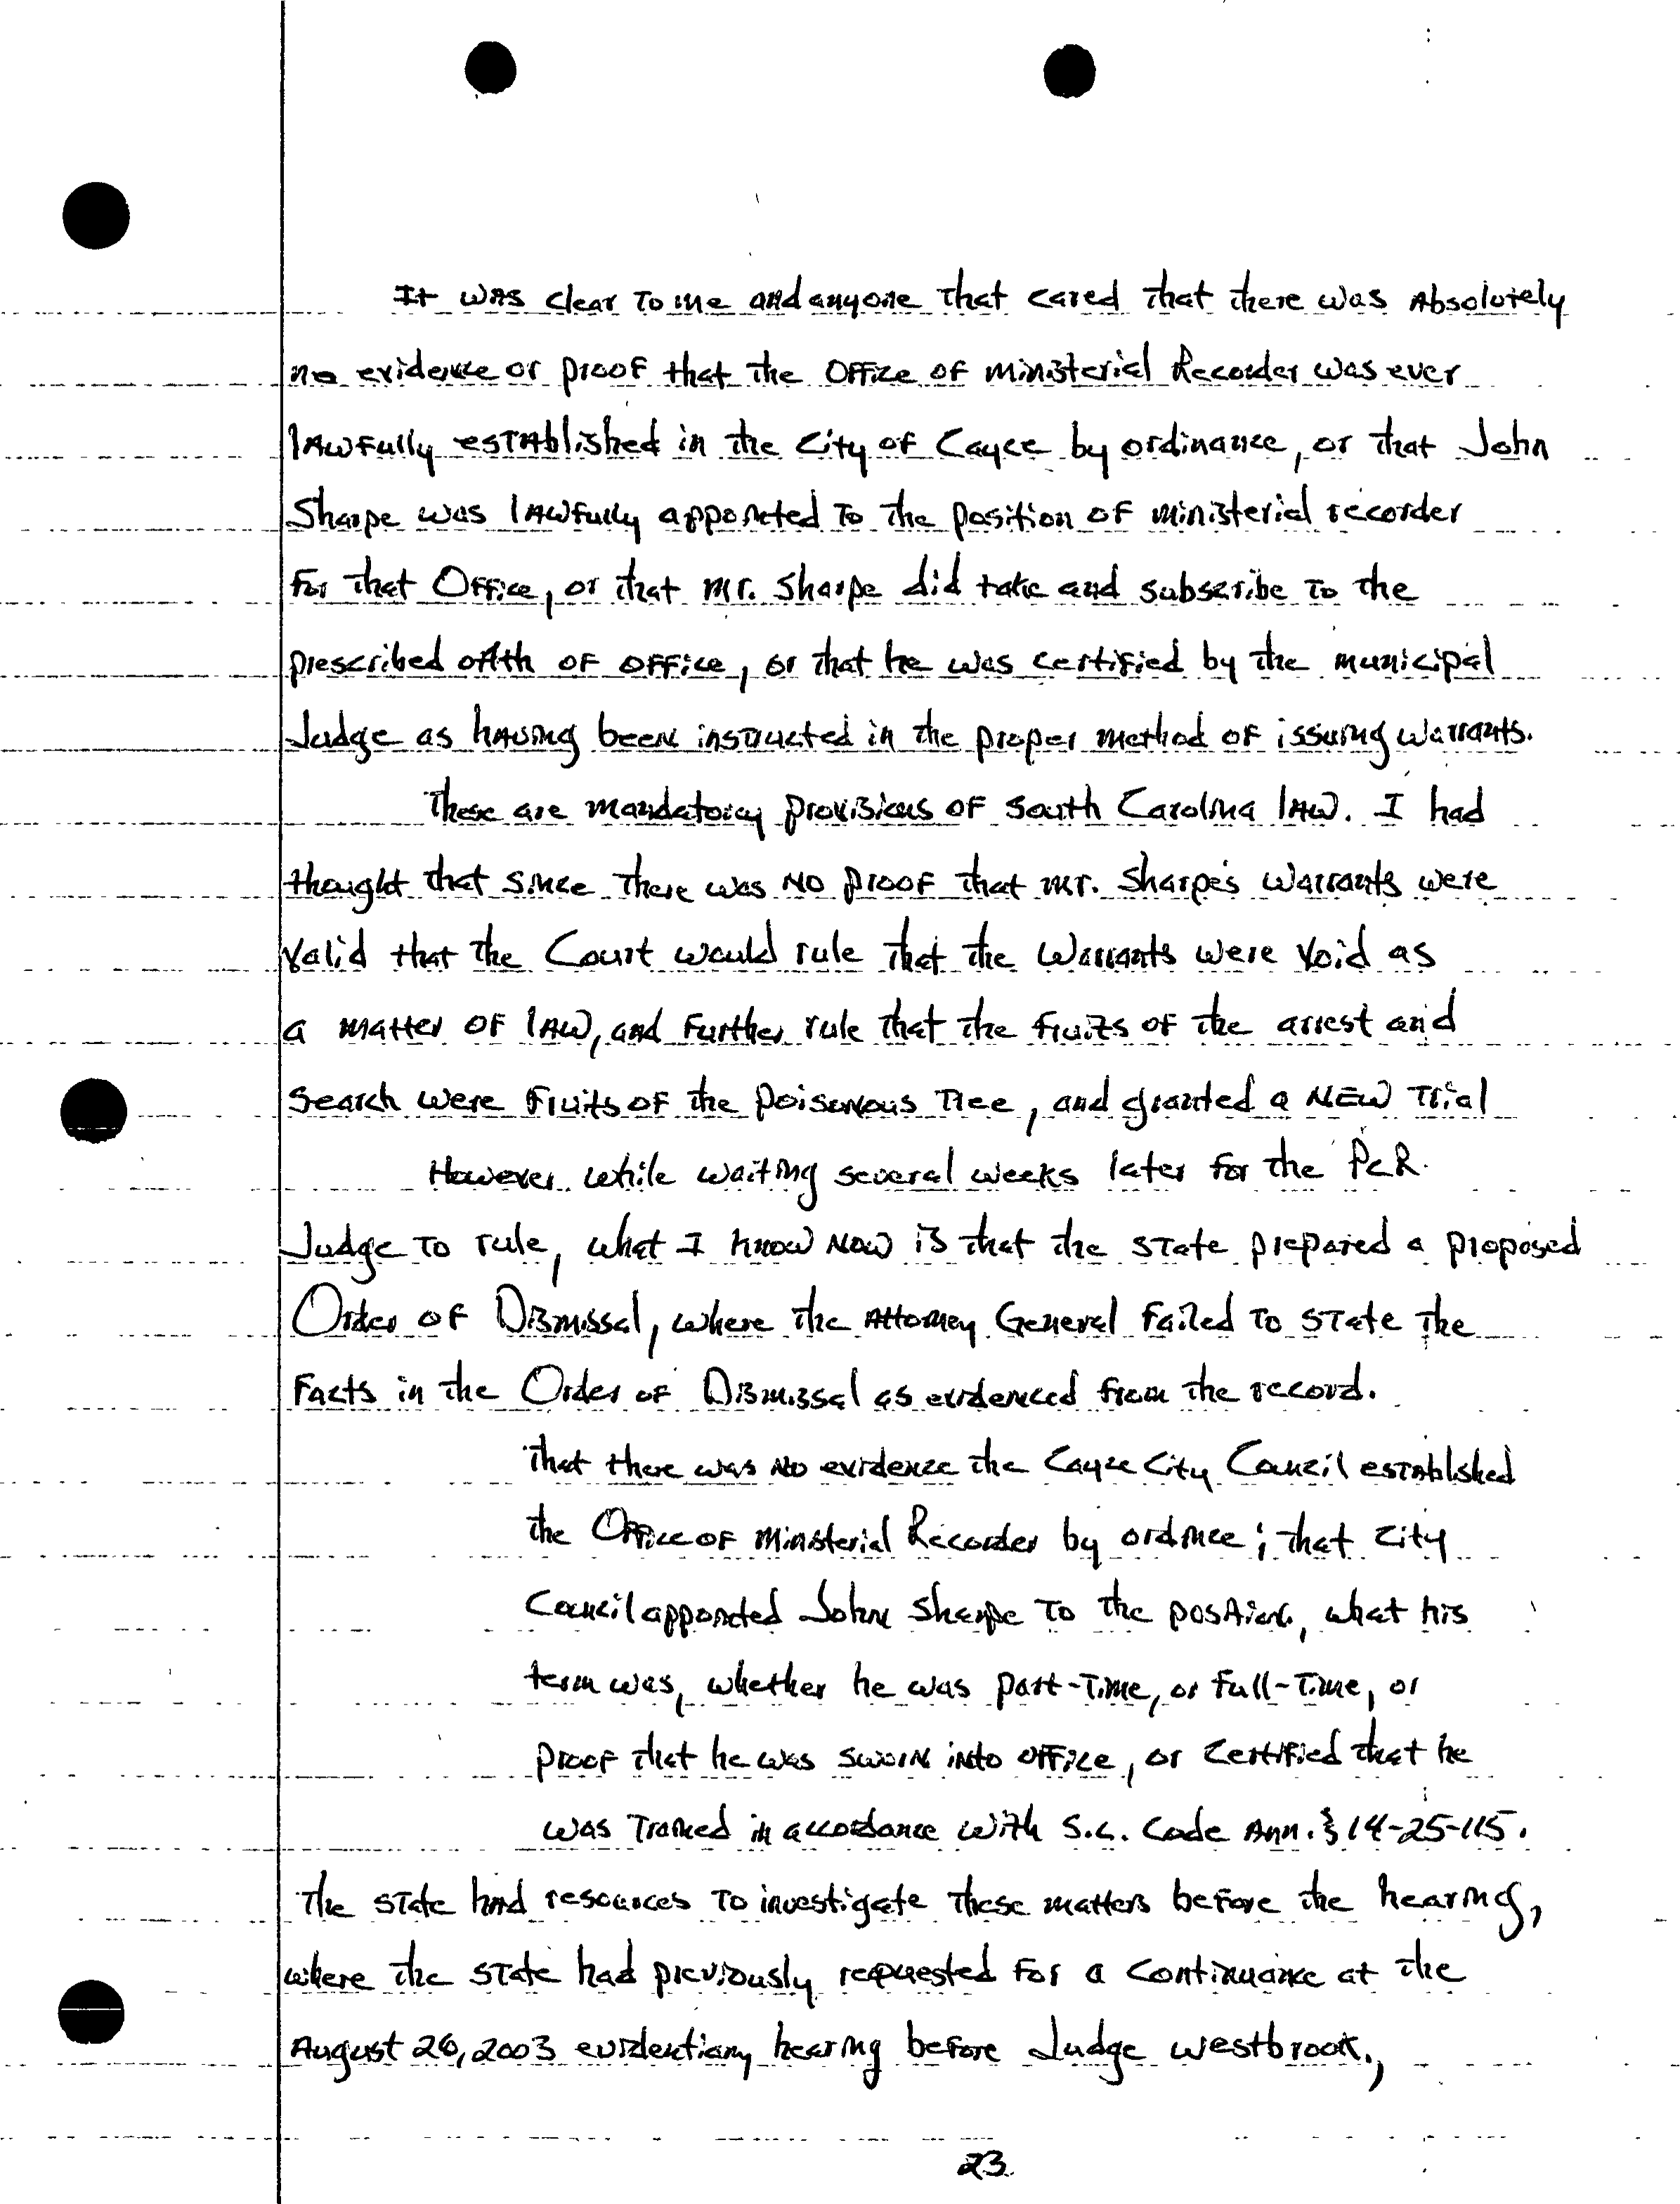 It was clear to me and anyone that cared that there was Absolutely
no evidence or proof that the Office of Ministerial Recorder was ever
lawfully established in the City of Cayce by ordinance, or that John
Sharpe was lawfully appointed to the position of ministerial recorder
for that Office, or that Mr. Sharpe did take and subscribe to the
prescribed oath of office, or that he was certified by the municipal
Judge as having been instructed in the proper method of issuing warrants.
These are mandatory provisions of South Carolina law. I had
thought that since there was no proof that Mr. Sharpe's warrants were
valid that the Court would rule that the Warrants were void as
a matter of law, and further rule that the fruits of the arrest and
search were fruits of the poisonous tree, and granted a NEW Trial
However while waiting several weeks later for the PCR
Judge to rule, what I know now is that the state prepared a proposed
Order of Dismissal, where the Attorney General failed to state the
facts in the Order of Dismissal as evidenced from the record.
That there was no evidence the Cayce City Council established
the Office of Ministerial Recorder by ordince; that City
Council appointed John Sharpe to the position, what his
term was, whether he was part-time, or full-time, or
proof that he was sworn into office, or certified that he
was trained in accordance with S.C. Code Ann. § 14-25-115.
The state had resources to investigate these matters before the hearing,
where the state had previously requested for a continuance at the
August 26, 2003 evidentiary hearing before Judge Westbrook.,
23